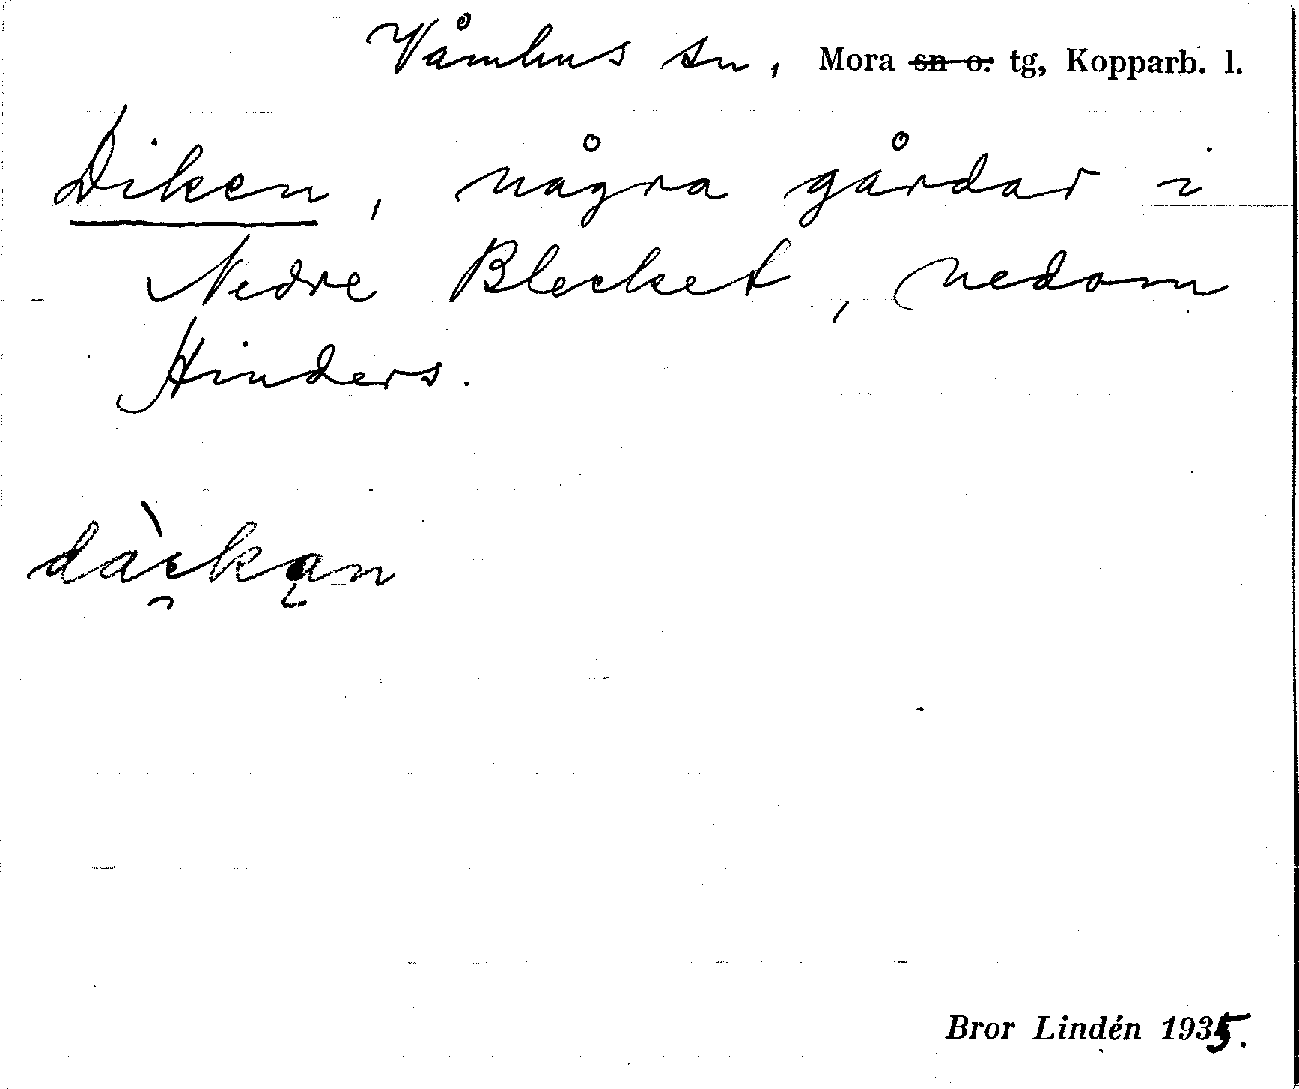 Våmhus sn, Mora sn o. tg, Kopparb. l.
Diken, några gårdar i
Nedre Blecket, nedom
Hinders.
Bror Lindén 1935.